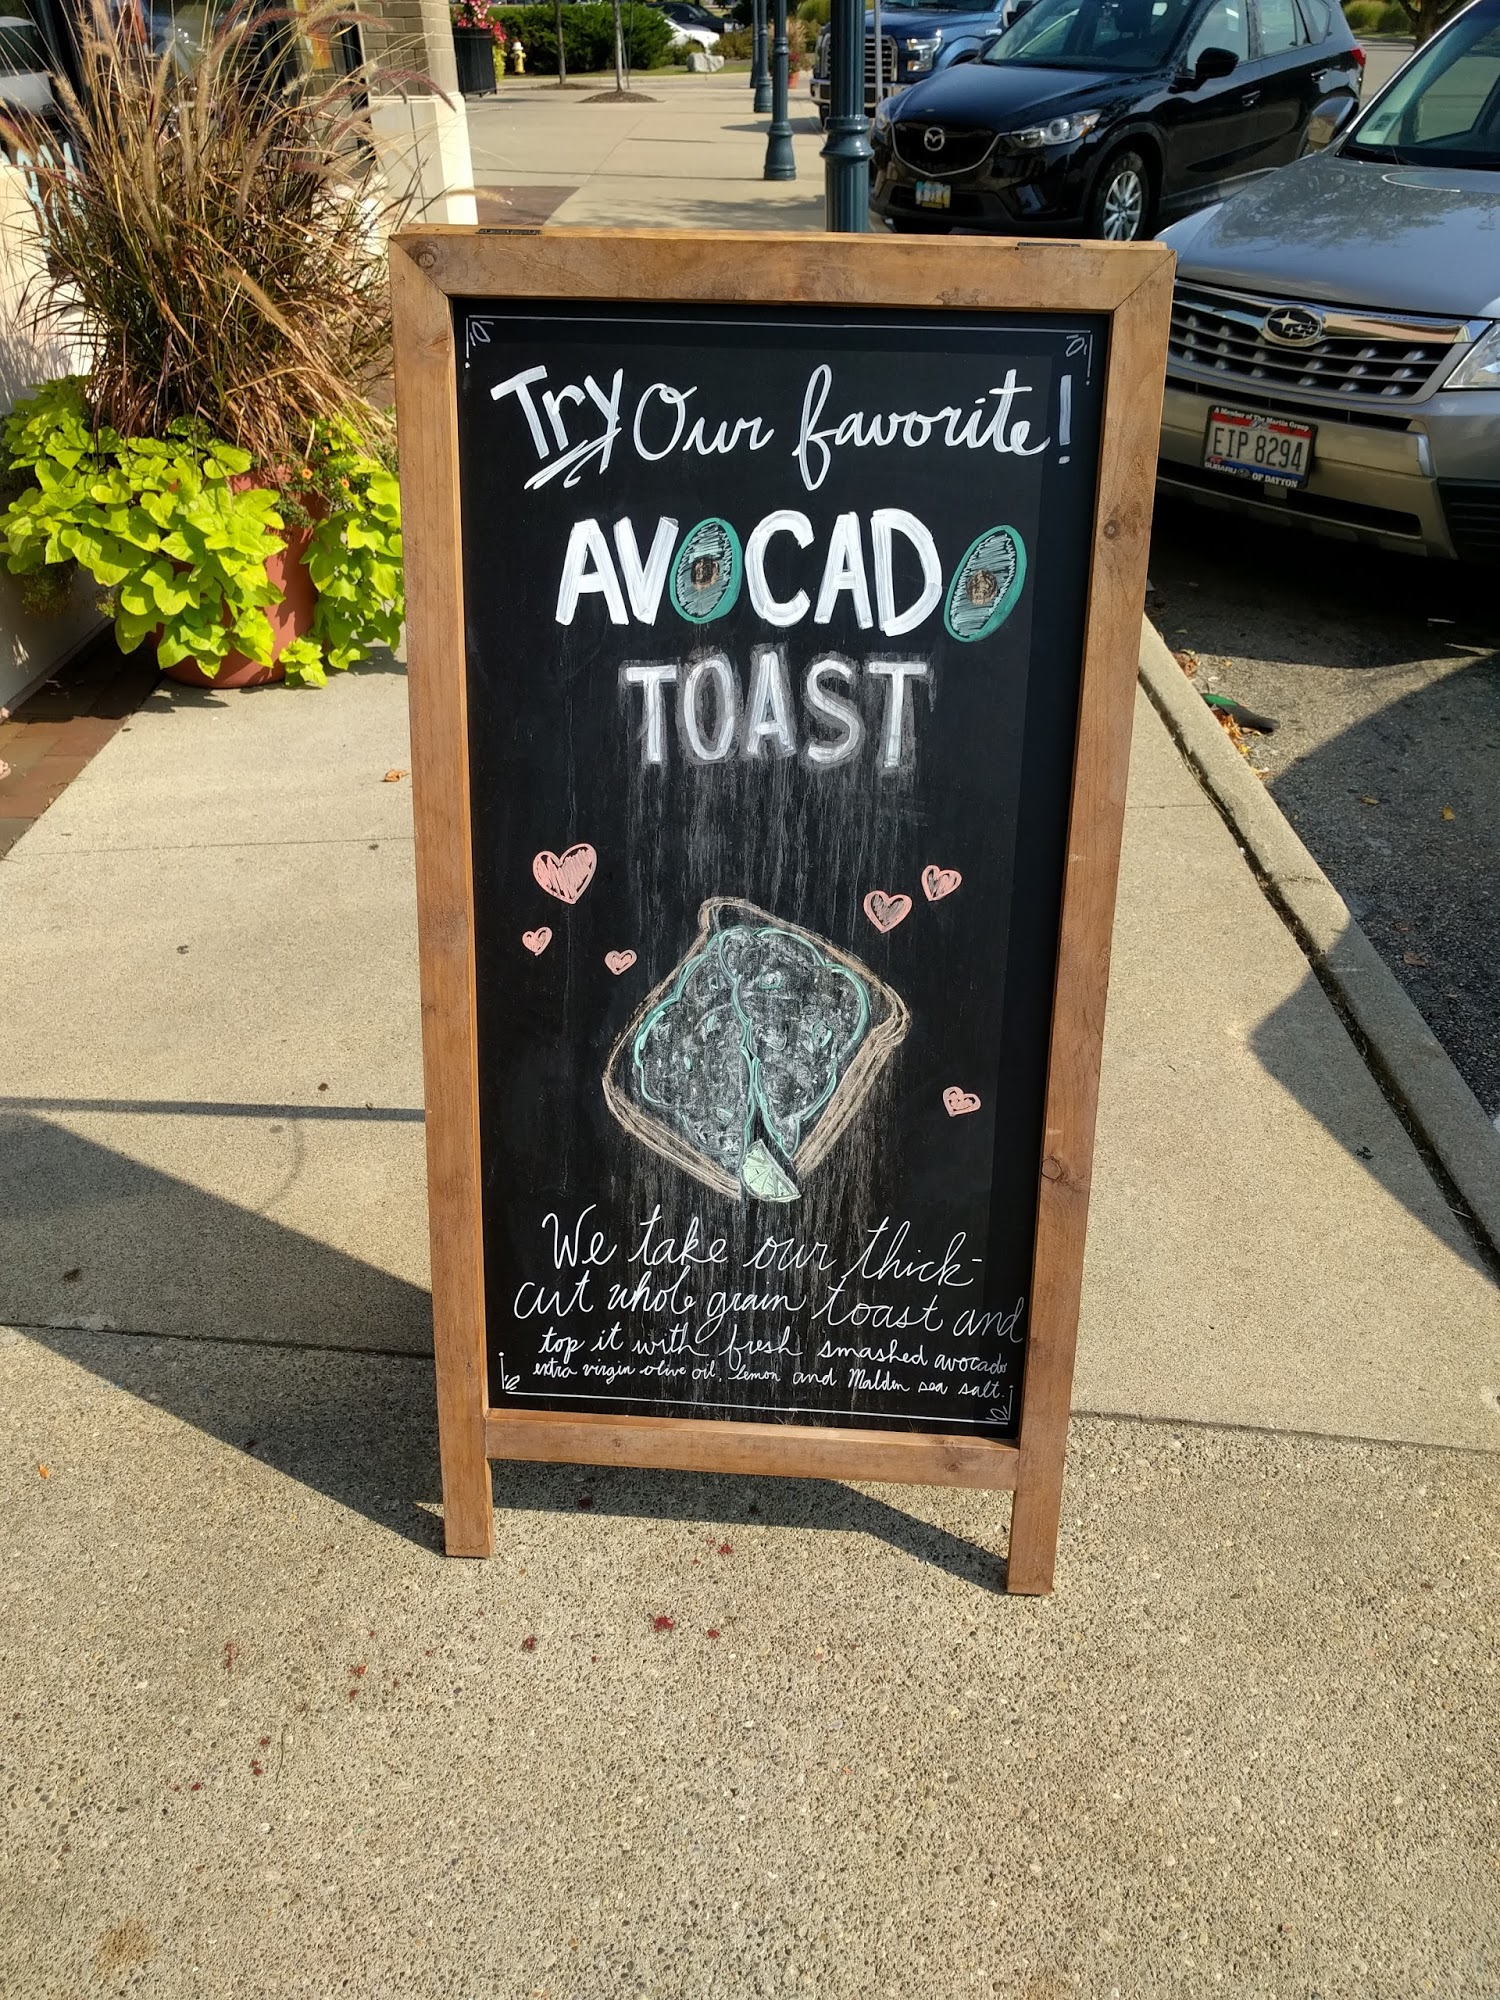 Try Our favorite!
AVOCADO
TOAST
We take our thick-
cut whole grain toast and
top it with fresh smashed avocado
extra virgin olive oil, lemon and Maldon sea salt.
A Member of The Martin Group
EIP 8294
SUBARU OF DAYTON